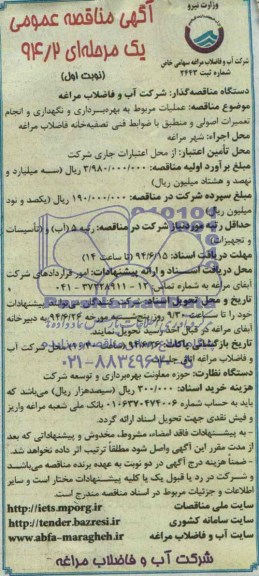 وزارت نیرو
شرکت آب و فاضلاب مراغه سهامی خاص
شماره ثبت ۲۶۴۳
آگهی مناقصه عمومی
یک مرحله‌ای ۹۴/۲
(نوبت اول)
دستگاه مناقصه گذار: شرکت آب و فاضلاب مراغه
موضوع مناقصه: عملیات مربوط به بهره‌برداری و نگهداری و انجام
تعمیرات اصولی و منطبق با ضوابط فنی تصفیه‌خانه فاضلاب مراغه
محل اجراء: شهر مراغه
محل تأمین اعتبار: از محل اعتبارات جاری شرکت
مبلغ برآورد اولیه مناقصه: ۳/۹۸۰/۰۰۰/۰۰۰ ریال (سه میلیارد و
نهصد و هشتاد میلیون ریال)
مبلغ سپرده شرکت در مناقصه: ۱۹۰/۰۰۰/۰۰۰ ریال (یکصد و نود
میلیون ریال)
حداقل رتبه موردنیاز شرکت در مناقصه: رتبه ۵ (آب) و (تأسیسات
و تجهیزات)
مهلت دریافت اسناد: ۹۴/۶/۱۵ (تا ساعت ۱۴)
محل دریافت اسناد و ارائه پیشنهادات: امور قراردادهای شرکت
آبفای مراغه به شماره تماس: ۱۳ - ۳۷۲۲۸۹۱۱ - ۰۴۱
تاریخ و محل تحویل اسناد: شرکت کنندگان می‌توانند پیشنهادات
خود را تا ساعت ۹/۳۰ روز پنج‌شنبه مورخه ۹۴/۶/۲۶ به دبیرخانه
آبفای مراغه در قبال اخذ رسید تحویل نمایند.
تاریخ بازگشایی پاکات: ۹۴/۶/۲۶ ساعت محل شرکت آب
و فاضلاب مراغه اتاق
۰۲۱-۸۸۳۴۹۶۷۰
دستگاه نظارت: حوزه معاونت بهره‌برداری و توسعه شرکت
هزینه خرید اسناد: ۳۰۰/۰۰۰ ریال (سیصدهزار ریال) می‌باشد که
باید به حساب شماره ۰۱۰۶۳۷۰۴۷۴۰۰۶ بانک ملی شعبه مراغه واریز
و فیش نقدی جهت تحویل اسناد ارائه گردد.
- به پیشنهادات فاقد امضاء، مشروط، مخدوش و پیشنهاداتی که بعد
از مدت مقرر این آگهی واصل شود مطلقاً ترتیب اثر داده نخواهد شد.
- ضمناً هزینه درج آگهی در دو نوبت به عهده برنده مناقصه می‌باشد
و شرکت در رد یا قبول یک یا کلیه پیشنهادات مختار است و سایر
اطلاعات و جزئیات مربوط در اسناد مناقصه مندرج است.
سایت ملی مناقصات http://iets.mporg.ir
سایت سامانه کشوری http://tender.bazresi.ir
سایت آب و فاضلاب مراغه www.abfa-maragheh.ir
شرکت آب و فاضلاب مراغه